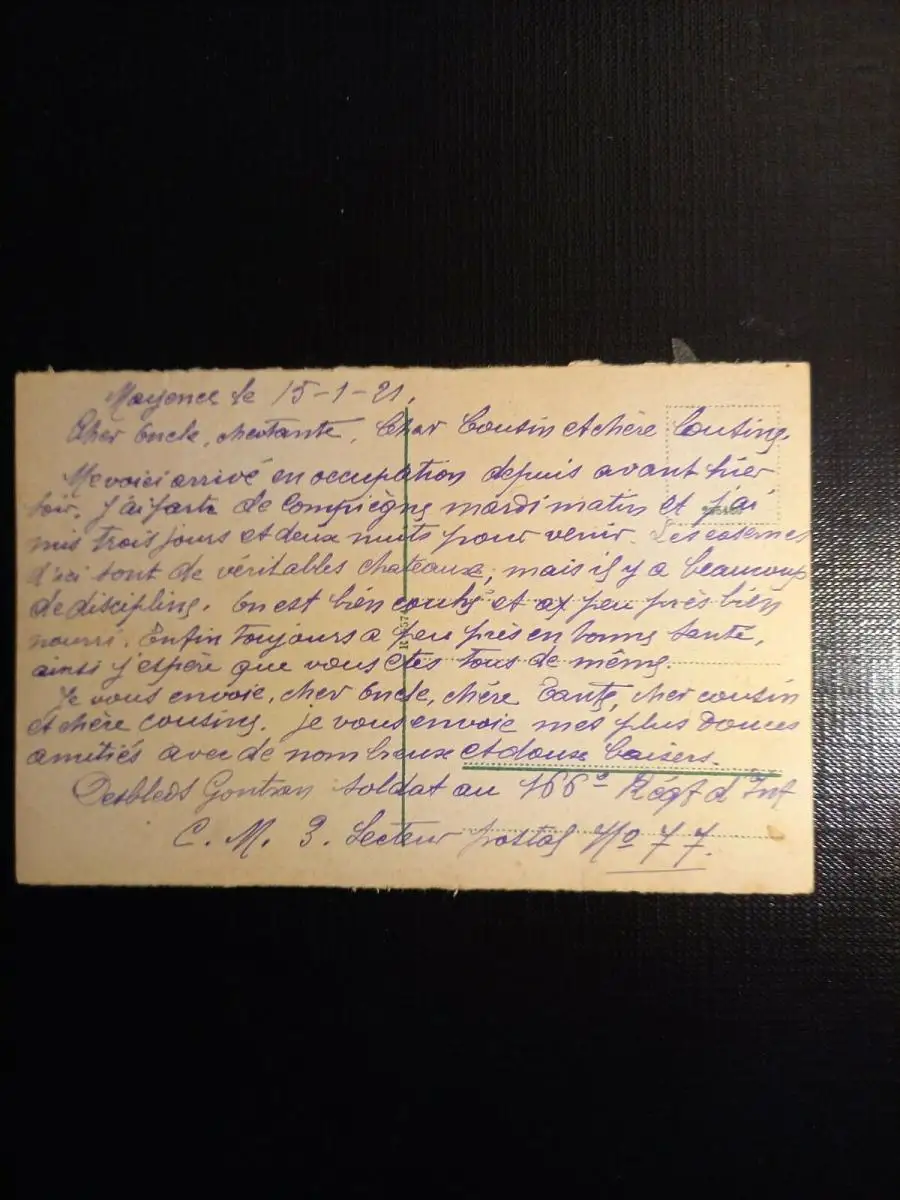 Mayence le 15-1-21,
Cher Oncle, chertante, Cher Cousin et chère Cousine,
Me voici arrivé en occupation depuis avant hier
soir. J'ai parti de Compiègne mardi matin et j'ai
mis trois jours et deux nuits pour venir. Les casernes
d'ici sont de véritables chateaux, mais il y a beaucoup
de discipline. On est bien couché et a peu près bien
nourri. Enfin toujours a peu près en bonne santé,
ainsi j'espère que vous êtes tous de même.
Je vous envoie, cher Oncle, chère Tante, cher cousin
et chère cousine, je vous envoie mes plus douces
amitiés avec de nombreux et doux baisers.
Desbleds Gontran soldat au 166e Régt d'Inf
C. M. 3. Secteur postal No 77.